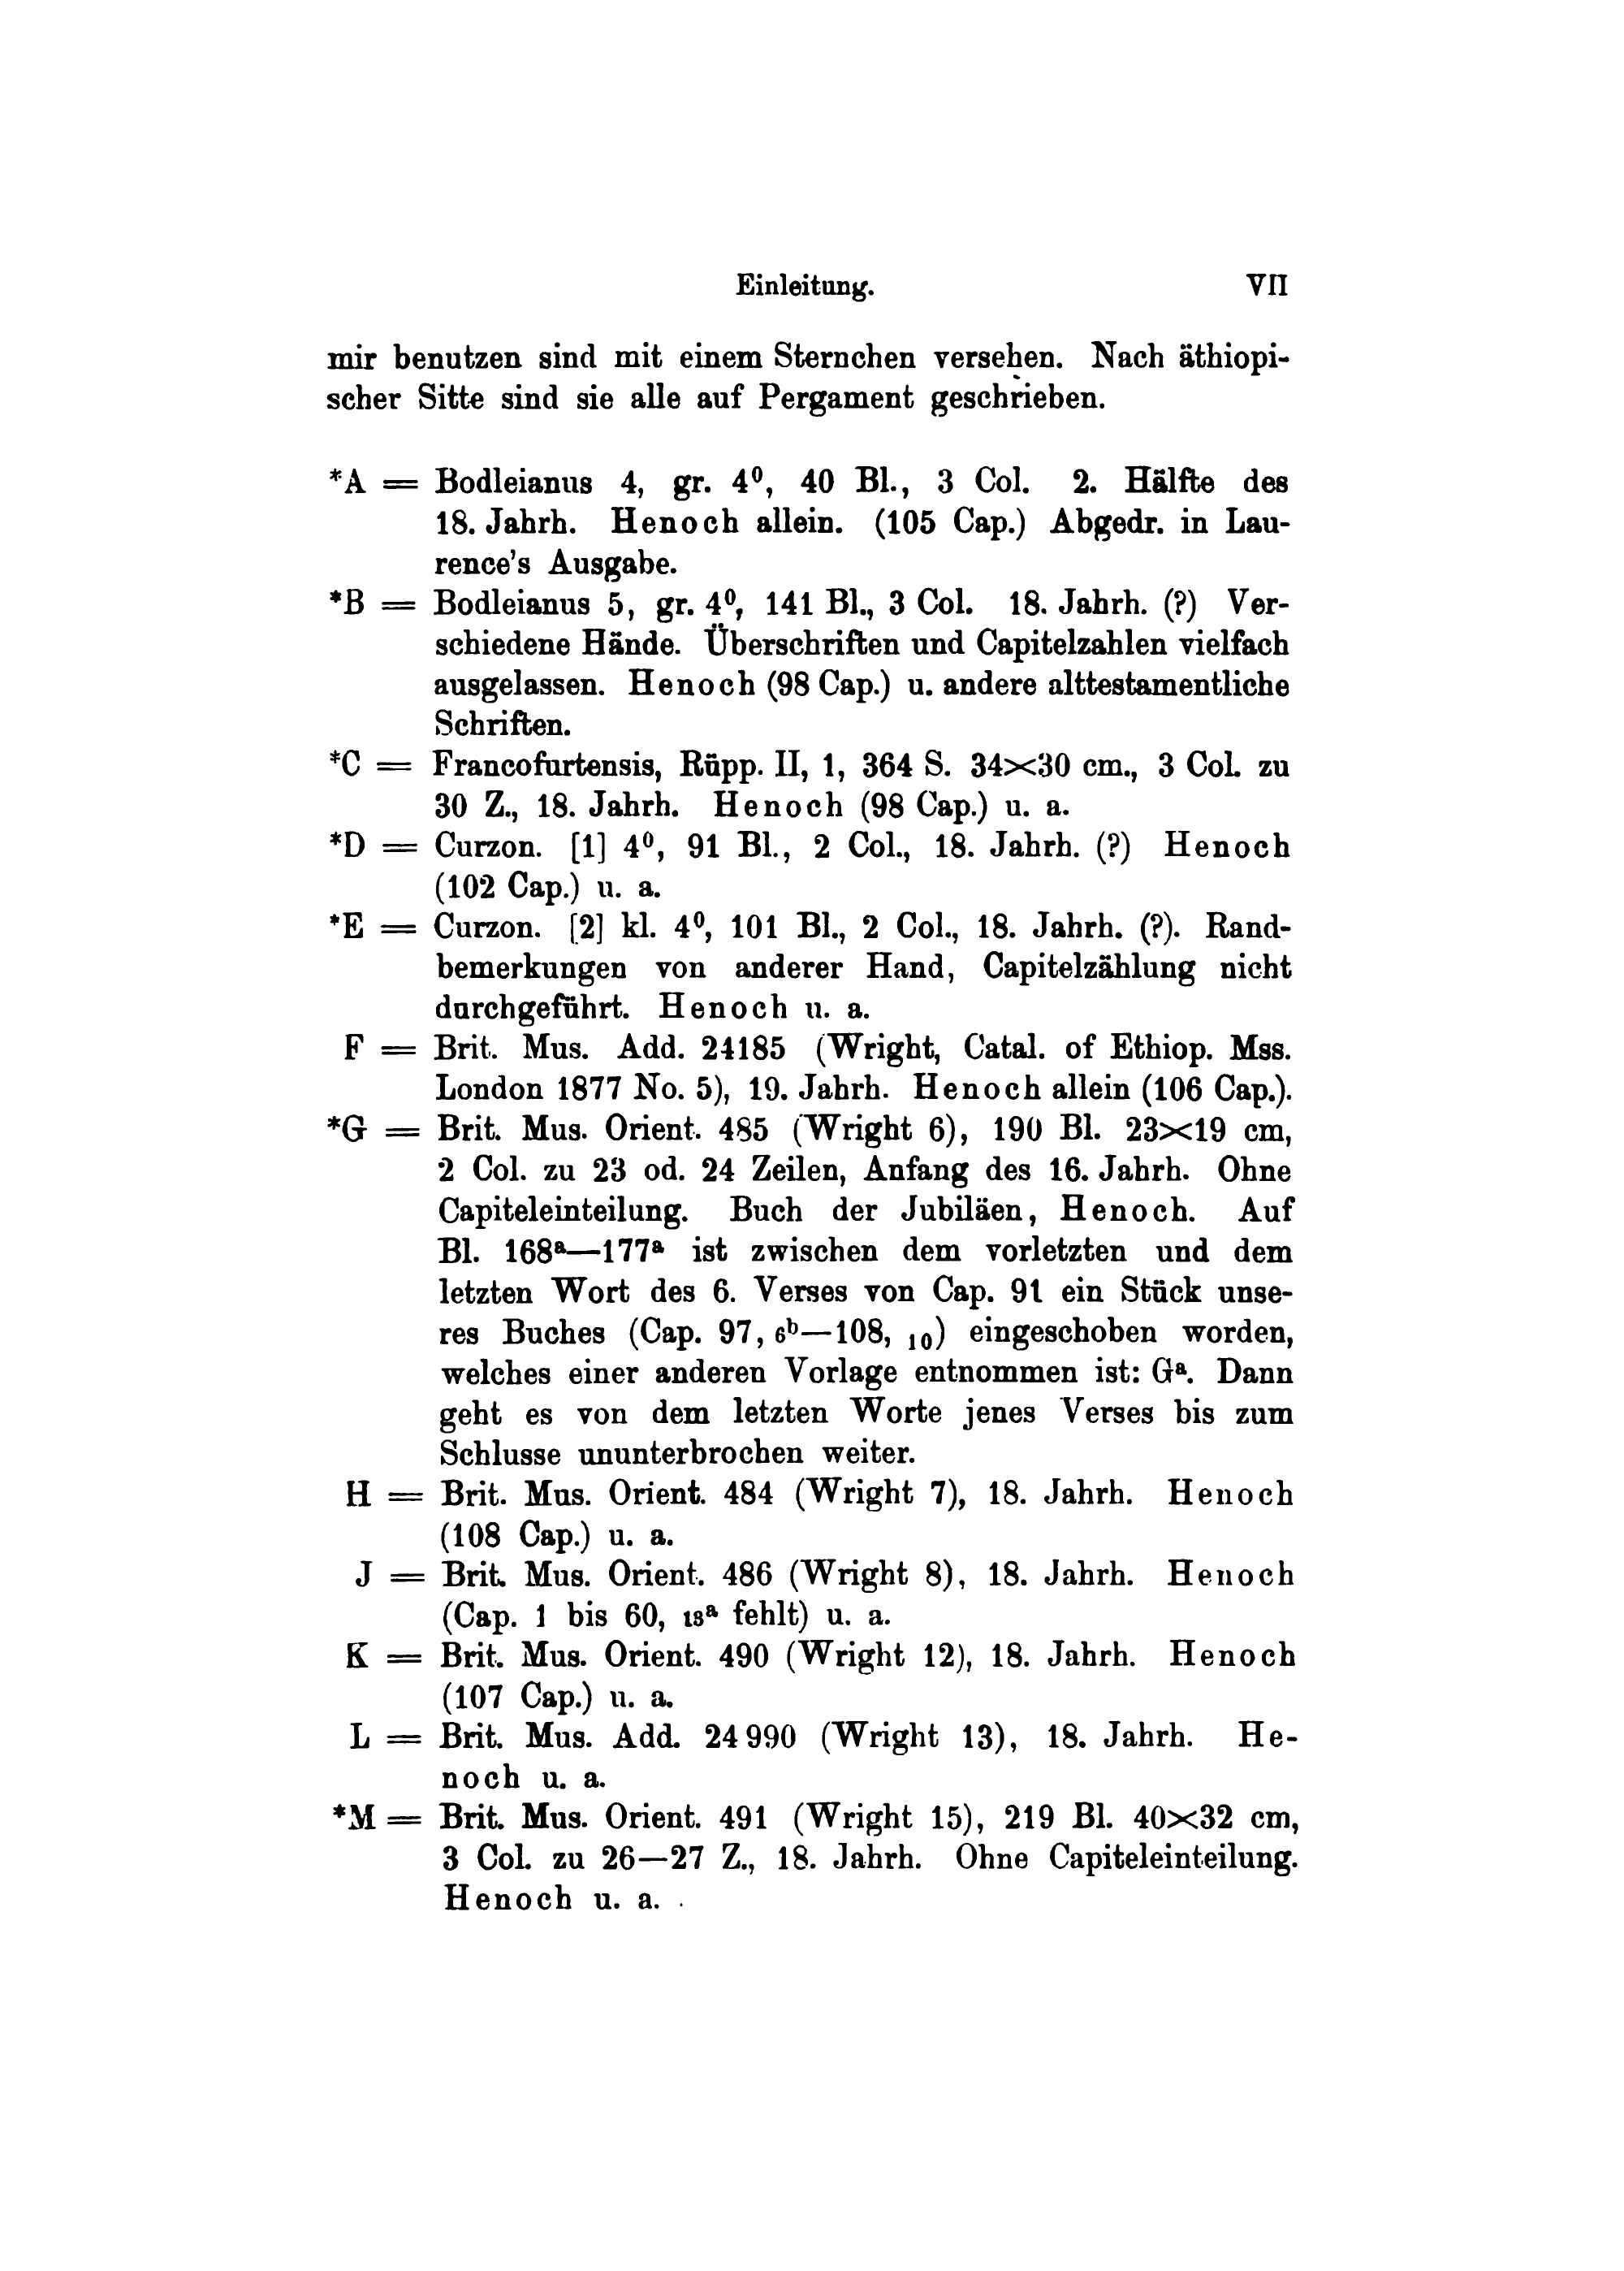 Einleitung. VII
mir benutzen sind mit einem Sternchen versehen. Nach äthiopi-
scher Sitte sind sie alle auf Pergament geschrieben.
*A = Bodleianus 4, gr. 4⁰, 40 Bl., 3 Col. 2. Hälfte des
18. Jahrh. Henoch allein. (105 Cap.) Abgedr. in Lau-
rence's Ausgabe.
*B = Bodleianus 5, gr. 4⁰, 141 Bl., 3 Col. 18. Jahrh. (?) Ver-
schiedene Hände. Überschriften und Capitelzahlen vielfach
ausgelassen. Henoch (98 Cap.) u. andere alttestamentliche
Schriften.
*C = Francofurtensis, Rüpp. II, 1, 364 S. 34×30 cm., 3 Col. zu
30 Z., 18. Jahrh. Henoch (98 Cap.) u. a.
*D = Curzon. [1] 4⁰, 91 Bl., 2 Col., 18. Jahrh. (?) Henoch
(102 Cap.) u. a.
*E = Curzon. [2] kl. 4⁰, 101 Bl., 2 Col., 18. Jahrh. (?). Rand-
bemerkungen von anderer Hand, Capitelzählung nicht
durchgeführt. Henoch u. a.
F = Brit. Mus. Add. 24185 (Wright, Catal. of Ethiop. Mss.
London 1877 No. 5), 19. Jahrh. Henoch allein (106 Cap.).
*G = Brit. Mus. Orient. 485 (Wright 6), 190 Bl. 23×19 cm,
2 Col. zu 23 od. 24 Zeilen, Anfang des 16. Jahrh. Ohne
Capiteleinteilung. Buch der Jubiläen, Henoch. Auf
Bl. 168ᵃ—177ᵃ ist zwischen dem vorletzten und dem
letzten Wort des 6. Verses von Cap. 91 ein Stück unse-
res Buches (Cap. 97, 6ᵇ—108, 10) eingeschoben worden,
welches einer anderen Vorlage entnommen ist: Gᵃ. Dann
geht es von dem letzten Worte jenes Verses bis zum
Schlusse ununterbrochen weiter.
H = Brit. Mus. Orient. 484 (Wright 7), 18. Jahrh. Henoch
(108 Cap.) u. a.
J = Brit. Mus. Orient. 486 (Wright 8), 18. Jahrh. Henoch
(Cap. 1 bis 60, 13ᵃ fehlt) u. a.
K = Brit. Mus. Orient. 490 (Wright 12), 18. Jahrh. Henoch
(107 Cap.) u. a.
L = Brit. Mus. Add. 24990 (Wright 13), 18. Jahrh. He-
noch u. a.
*M = Brit. Mus. Orient. 491 (Wright 15), 219 Bl. 40×32 cm,
3 Col. zu 26—27 Z., 18. Jahrh. Ohne Capiteleinteilung.
Henoch u. a.